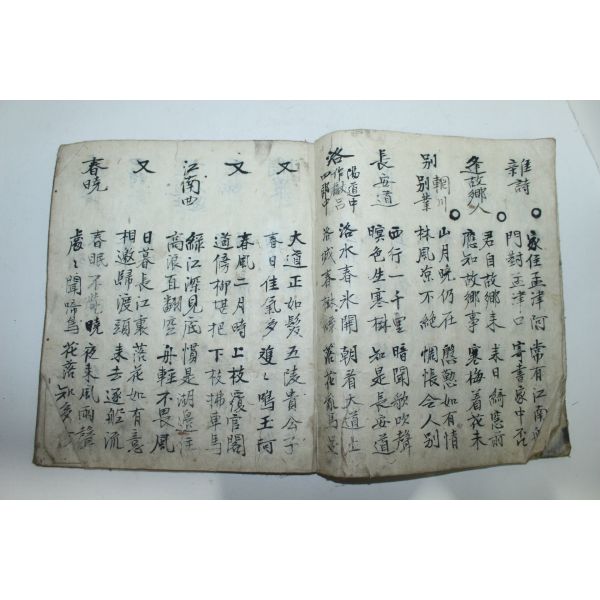 雜詩
家住孟津河 常有江南
門對孟津口 寄書家中否
逢故鄉人
君自故鄉來 來日綺窓前
應知故鄉事 寒梅着花未
別輞川別業
山月曉仍在 慇懃如有情
林風凉不絶 惆悵令人別
長安道
西行一千里 暗聞歌吹聲
暝色生寒樹 知是長安道
洛陽道中作獻呂四郎中
洛水春氷開 朝看大道上
洛城春樹綠 落花亂馬足
又
大道正如髮 五陵貴公子
春日佳氣多 雙〻鳴玉珂
又
春風二月時 上枝覆官閣
道傍柳堪把 下枝拂車馬
江南曲
綠江深見底 慣是湖邊住
高浪直翻空 舟輕不畏風
又
日暮長江裏 落花如有意
相邀歸渡頭 來去逐船流
春曉
春眠不覺曉 夜來風雨聲
處〻聞啼鳥 花落知多少